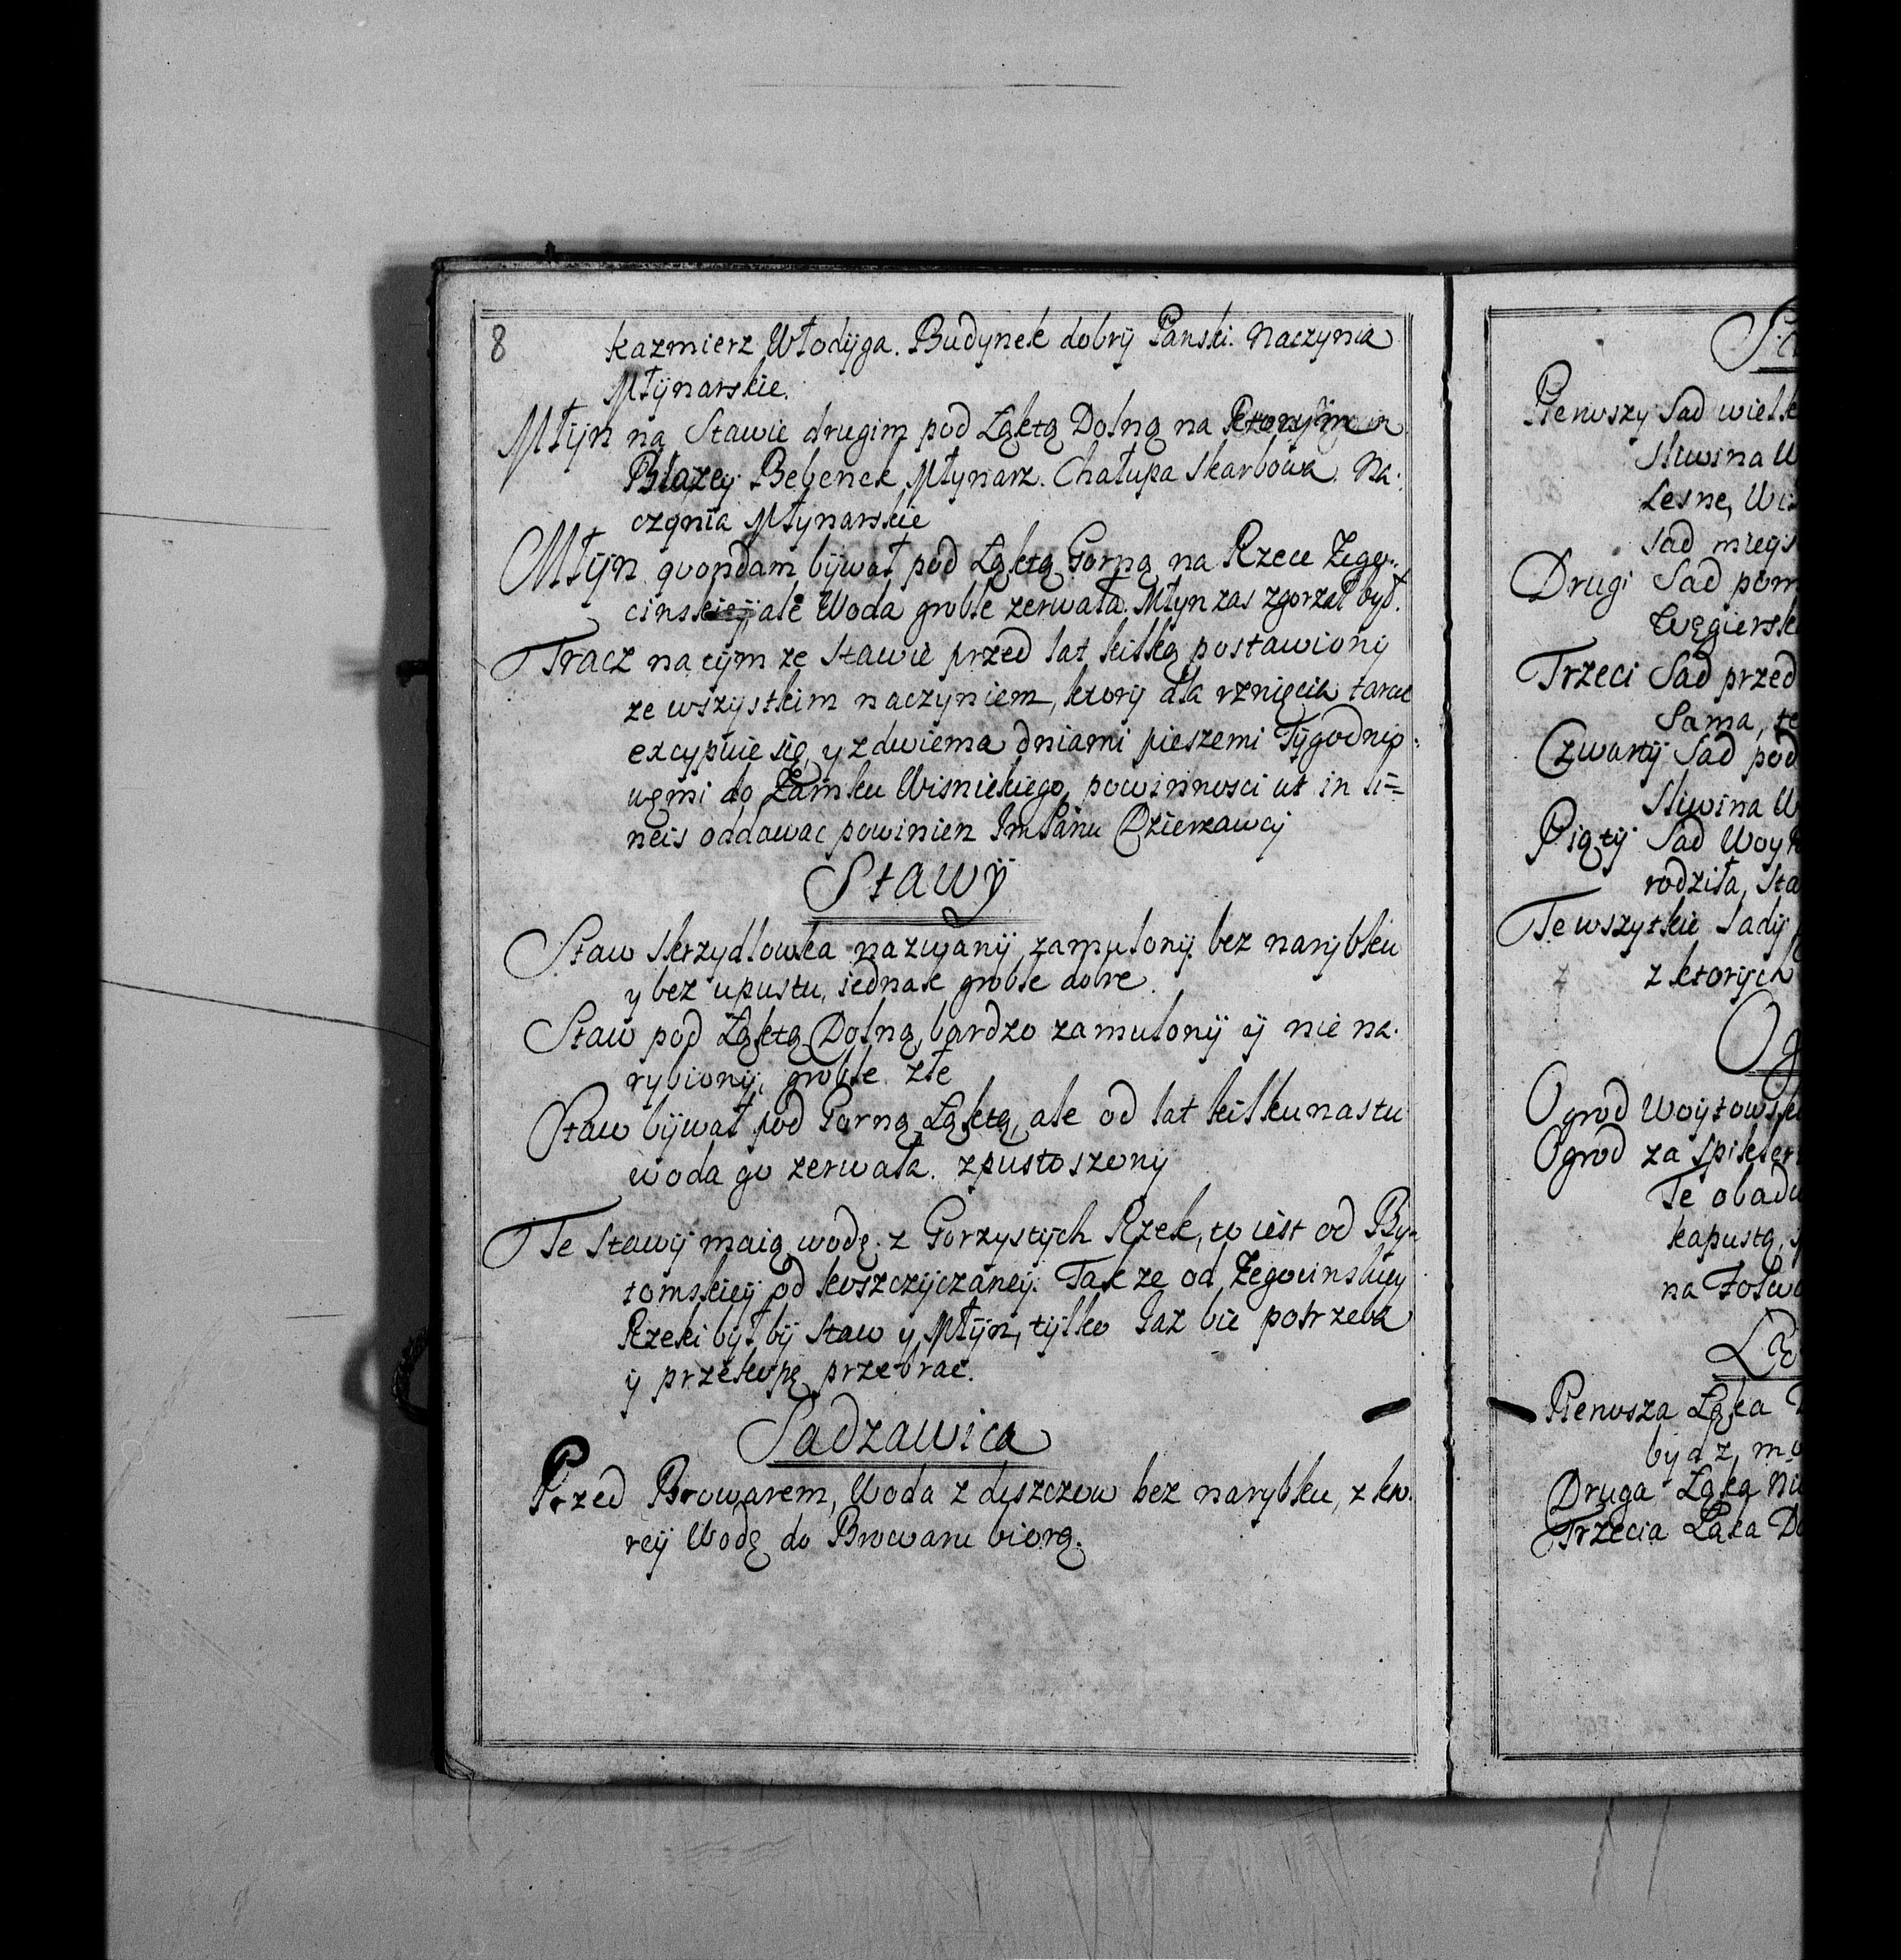 8
Kazmierz Włodyga. Budynek dobry Panski. Naczynia
Młynarskie.
Młyn na Stawie drugim pod Łąktą Dolną na ktorym
Błazey Bebenek Młynarz. Chałupa Skarbowa. Na-
czynia Młynarskie
Młyn quondam bywał pod Łąktą Gorną na Rzece Zego-
cinskiey ale Woda groble zerwała. Młyn zas zgorzał był.
Tracz na tym ze Stawie przed lat kilką postawiony
ze wszystkim naczyniem, ktory dla rznięcia tarcic
excypuie się, y z dwiema dniami pieszemi Tygodnio-
wemi do Zamku Wisnickiego, powinnosci ut in li=
neis oddawac powinien ImPanu Dzierzawcy
Stawy
Staw Skrzydlowka nazwany, zamulony bez narybku
y bez upustu, iednak groble dobre.
Staw pod Łąktą Dolną, bardzo zamulony y nie na-
rybiony, groble złe
Staw bywał pod Gorną Łąktą, ale od lat kilkunastu
woda go zerwała. zpustoszony
Te Stawy maią wodę z Gorzystych Rzek, to iest od By-
tomskiey od koszczyczaney. Takze od Zegocinskiey
Rzeki był by Staw y Młyn, tylko Jaz bić potrzeba
y przekopę przebrac.
Sadzawica
Przed Browarem, Woda z dyszczow bez narybku, z kto-
rey Wodę do Browaru biorą.
Pierwszy Sad wielk
Sliwina W
Lesne, Wis
Sad mieys
Drugi Sad pom
Węgiersk
Trzeci Sad przed
Sama, te
Czwarty Sad pod
Sliwina W
Piąty Sad Woyt
rodziła, Sta
Te wszytkie Sady
z ktorych
Og
Ogrod Woytowsk
Ogrod za Spikler
Te obadw
kapustą, s
na Folwa
Łą
Pierwsza Łąka D
bydz, mo
Druga Łąka
Trzecia Łąka Do